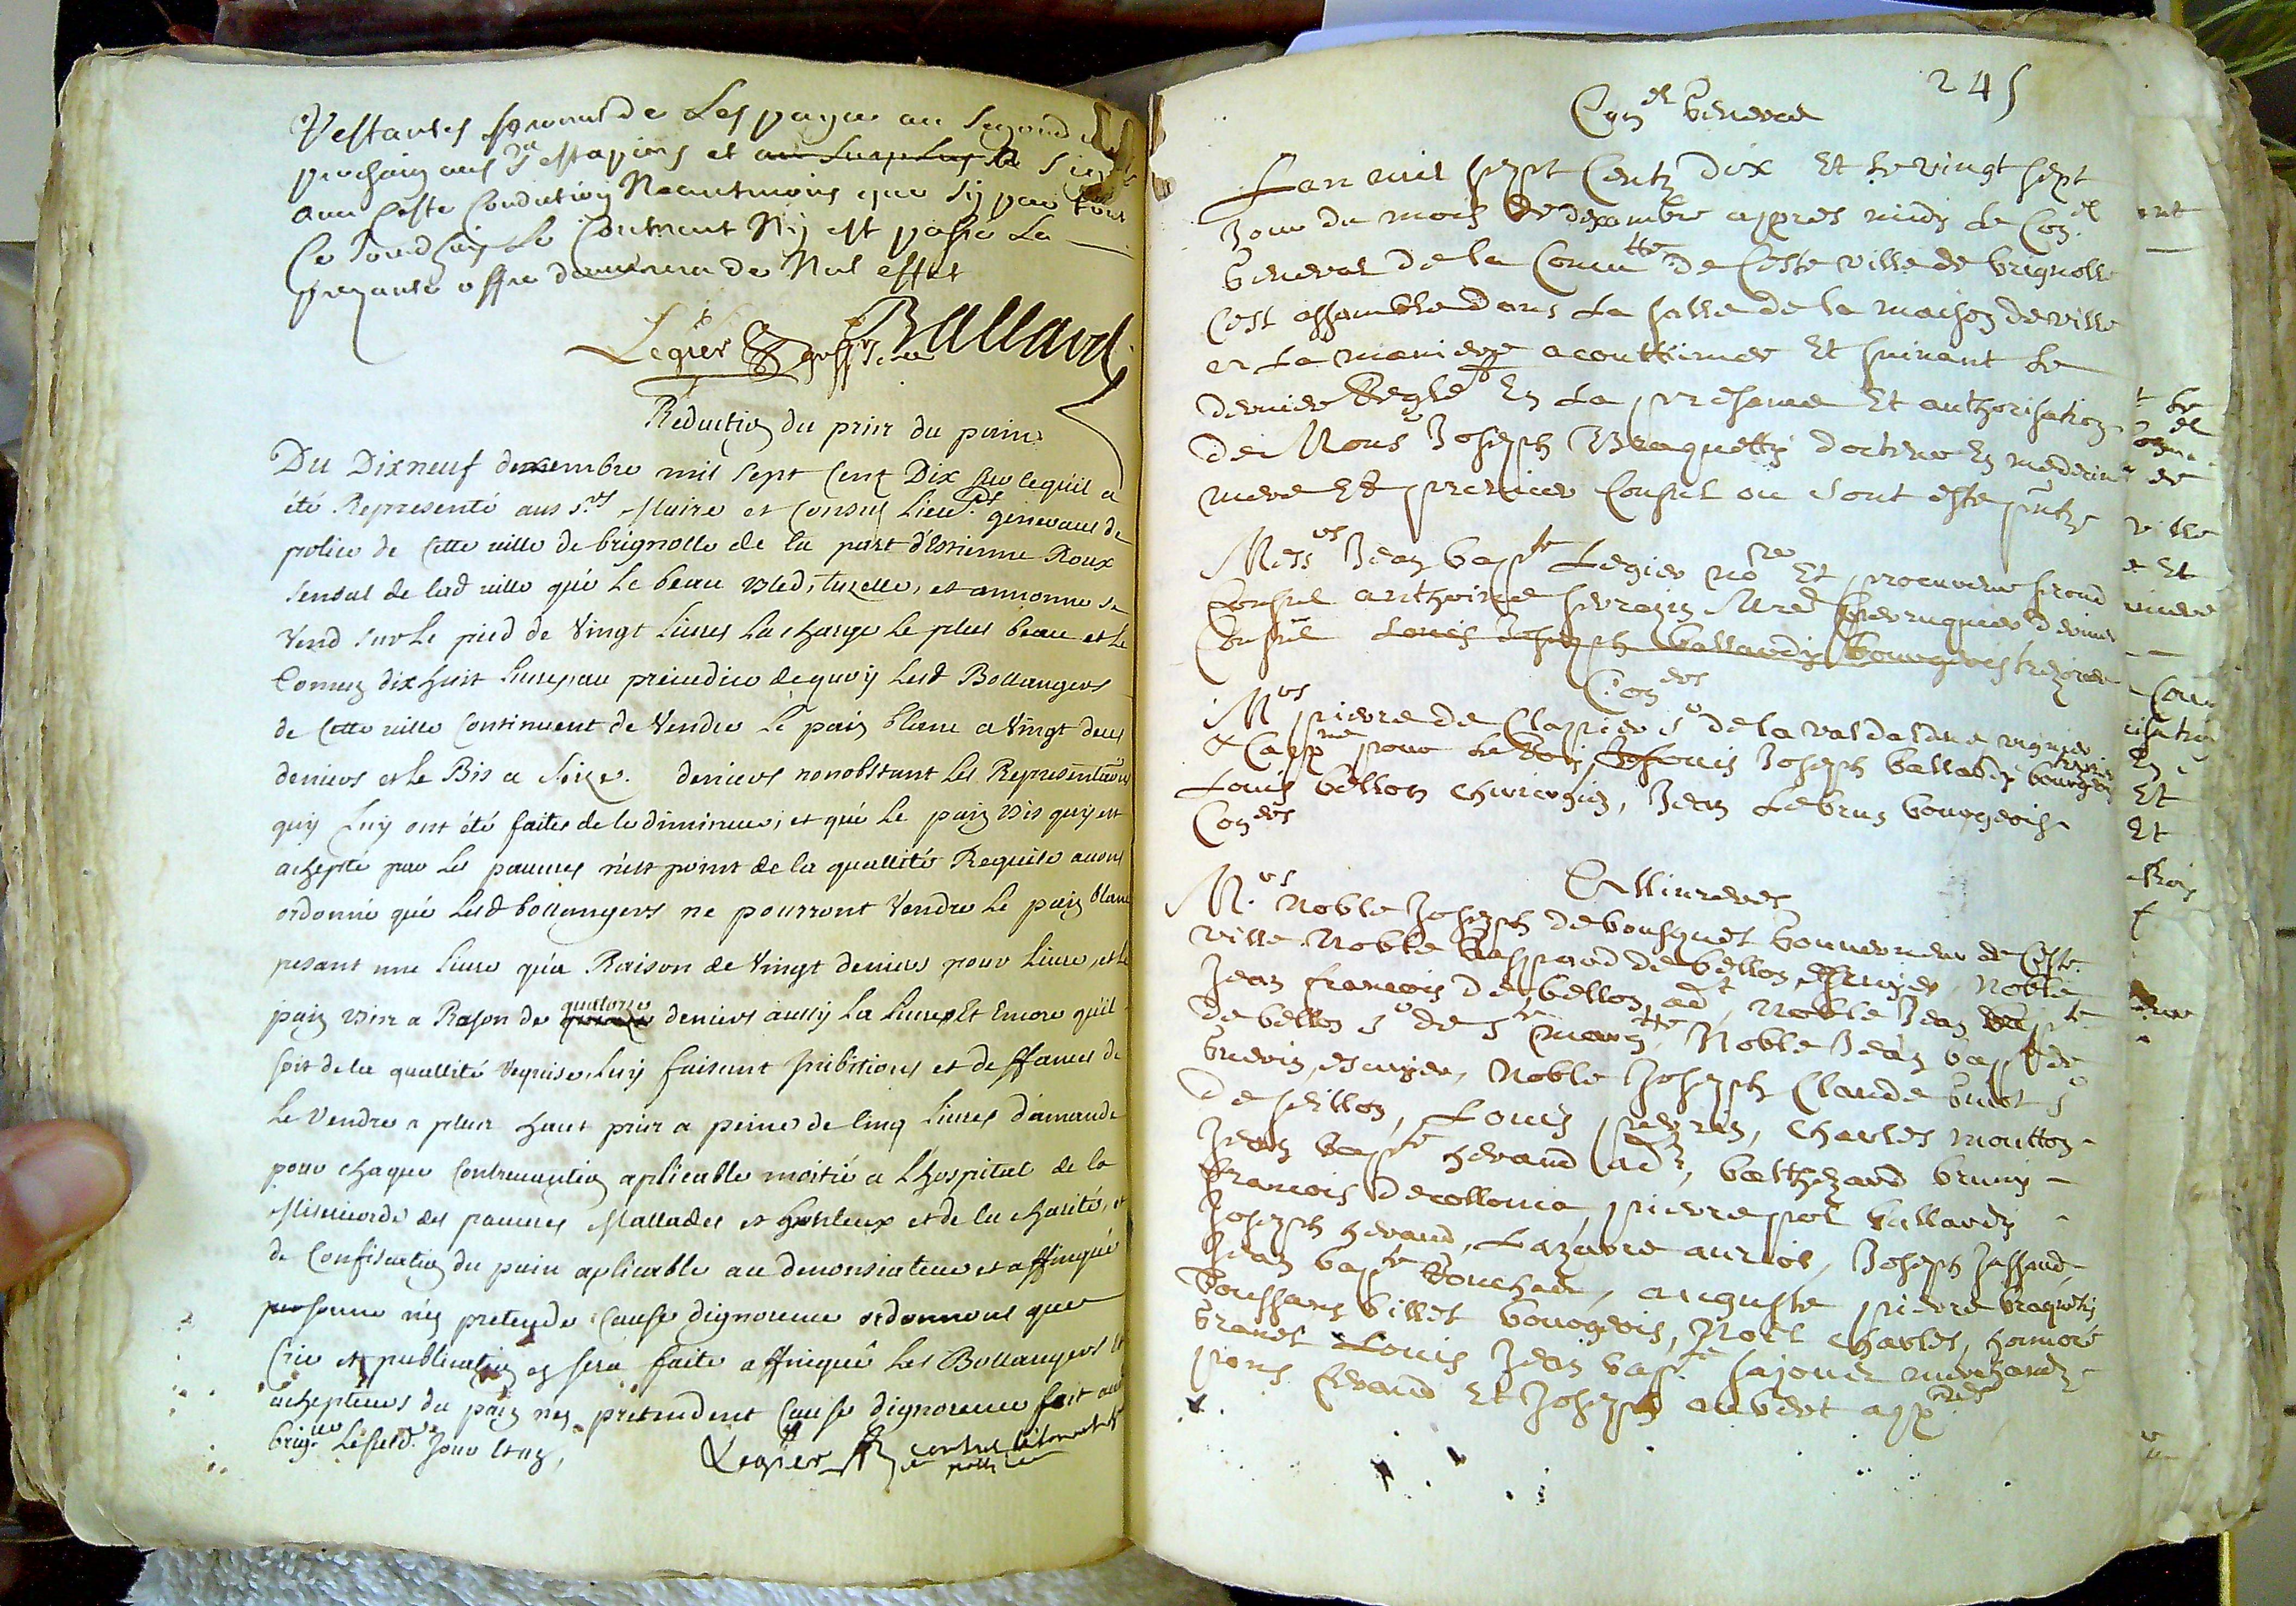 restantes promet de les payer au segond
prochain aux Srs estapiers et au surplus le
avec ceste condition Neantmoins que sy par tout
ce Jourdhuy le Ny est passé la
prezante offre demurera de Nul effet
Legier greffier Ballard
Reduction du prix du pain
Du Dixneuf dexembre mil sept Cens Dix sur cequil a
été Representé aus Srs Maire et Consuls Lieut. generaus de
police de Cette ville de brignolle de la part d'Estienne Roux
sensal de lad ville qué Le beau Bled, tuzelle, et annonne se
Vend sur Le pied de Vingt Livres La charge Le plus beau et Le
Comun dix huit Livres, au préiudice dequoy Lesd Bollangers
de Cette ville Continuent de Vendre Le pain blanc a Vingt deux
deniers et Le Bis a seize deniers nonobstant Les Representaons
quy Luy ont été faites de le diminuer, et qué Le pain Bis quy est
achepté par Les pauvres n'est point de la quallité Requise avons
ordonné qué Lesd bollangers ne pourront Vendre Le pain blanc
pesant une Livre qu'a Raison de Vingt deniers pour Livre, et Le
pain Bis a Rason de quatorze deniers aussy La Livre, Et Encore qu'il
soit de la quallité requise, Luy faisant Inibitions et deffances de
Le Vendre a plus haut prix a peine de Cinq Livres d'amande
pour chaque Contrevantion aplicable moitié a L'hospital de la
Misericorde des pauvres Mallades et honteux et de la charité, et
de Confiscation du pain aplicable au denonsiateur et affinqué
personne n'en pretende Cause dignorence ordonnons que
Crie et publication en sera faite affinqué Les Bollangers et
achepteurs du pain n'en prétendent Cause dignorence fait aud
briglle Lesusd. Jour et an,
Legier
245
Conel general
Lan mil sept Centz dix Et le vingt sept
Jour du mois de dexambre appres midy le Conel
general de la Comutte de Ceste ville de brignolle
Cest assamblé dans La salle de la maison de ville
en la maniere acouttumée Et suivant le
dernier Reglet En La presance Et authorisation
de Mons Joseph Braquetty docteur En medecine
mere Et premier Consul ou sont esté pntz
Messrs Jean bapte Legier nore Et procureur segond
Consul anthoine serrezin Me perruquier dernier
Consul Louis Joseph ballardy bourgeois trezorier
Coners
Mrs pierre de Clappier Sr de la valdaldene viguier
& Cappne pour le Roy, Louis Joseph ballardy bourgeois
Louis bellon chirurgien, Jean Lebrun bourgeois
Coners
Allivrees
Mrs Noble Joseph de bousquet gouverneur de Ceste
ville Noble gaspard de bellon escuyer, Noble
Jean francois de bellon, adt, Noble Jean bapte
de bellon Sr de Ste margtte, Noble Jean bapte de
guerin, escuyer, Noble Joseph Claude guiot Sr
de seillon, Louis serrin, Charles moutton
Jean bapte geraud adt, balthezard bruny
francois decollonia, pierre pol ballardy
Joseph geraud, Lazarre auriol, Joseph Jassaud
Jean bapte bouchard, auguste pierre braquety
toussans billet bourgeois, Noel Charles, honnoré
granet Louis Jean bapte sajoux marchandz
pons geraud Et Joseph aubert appres